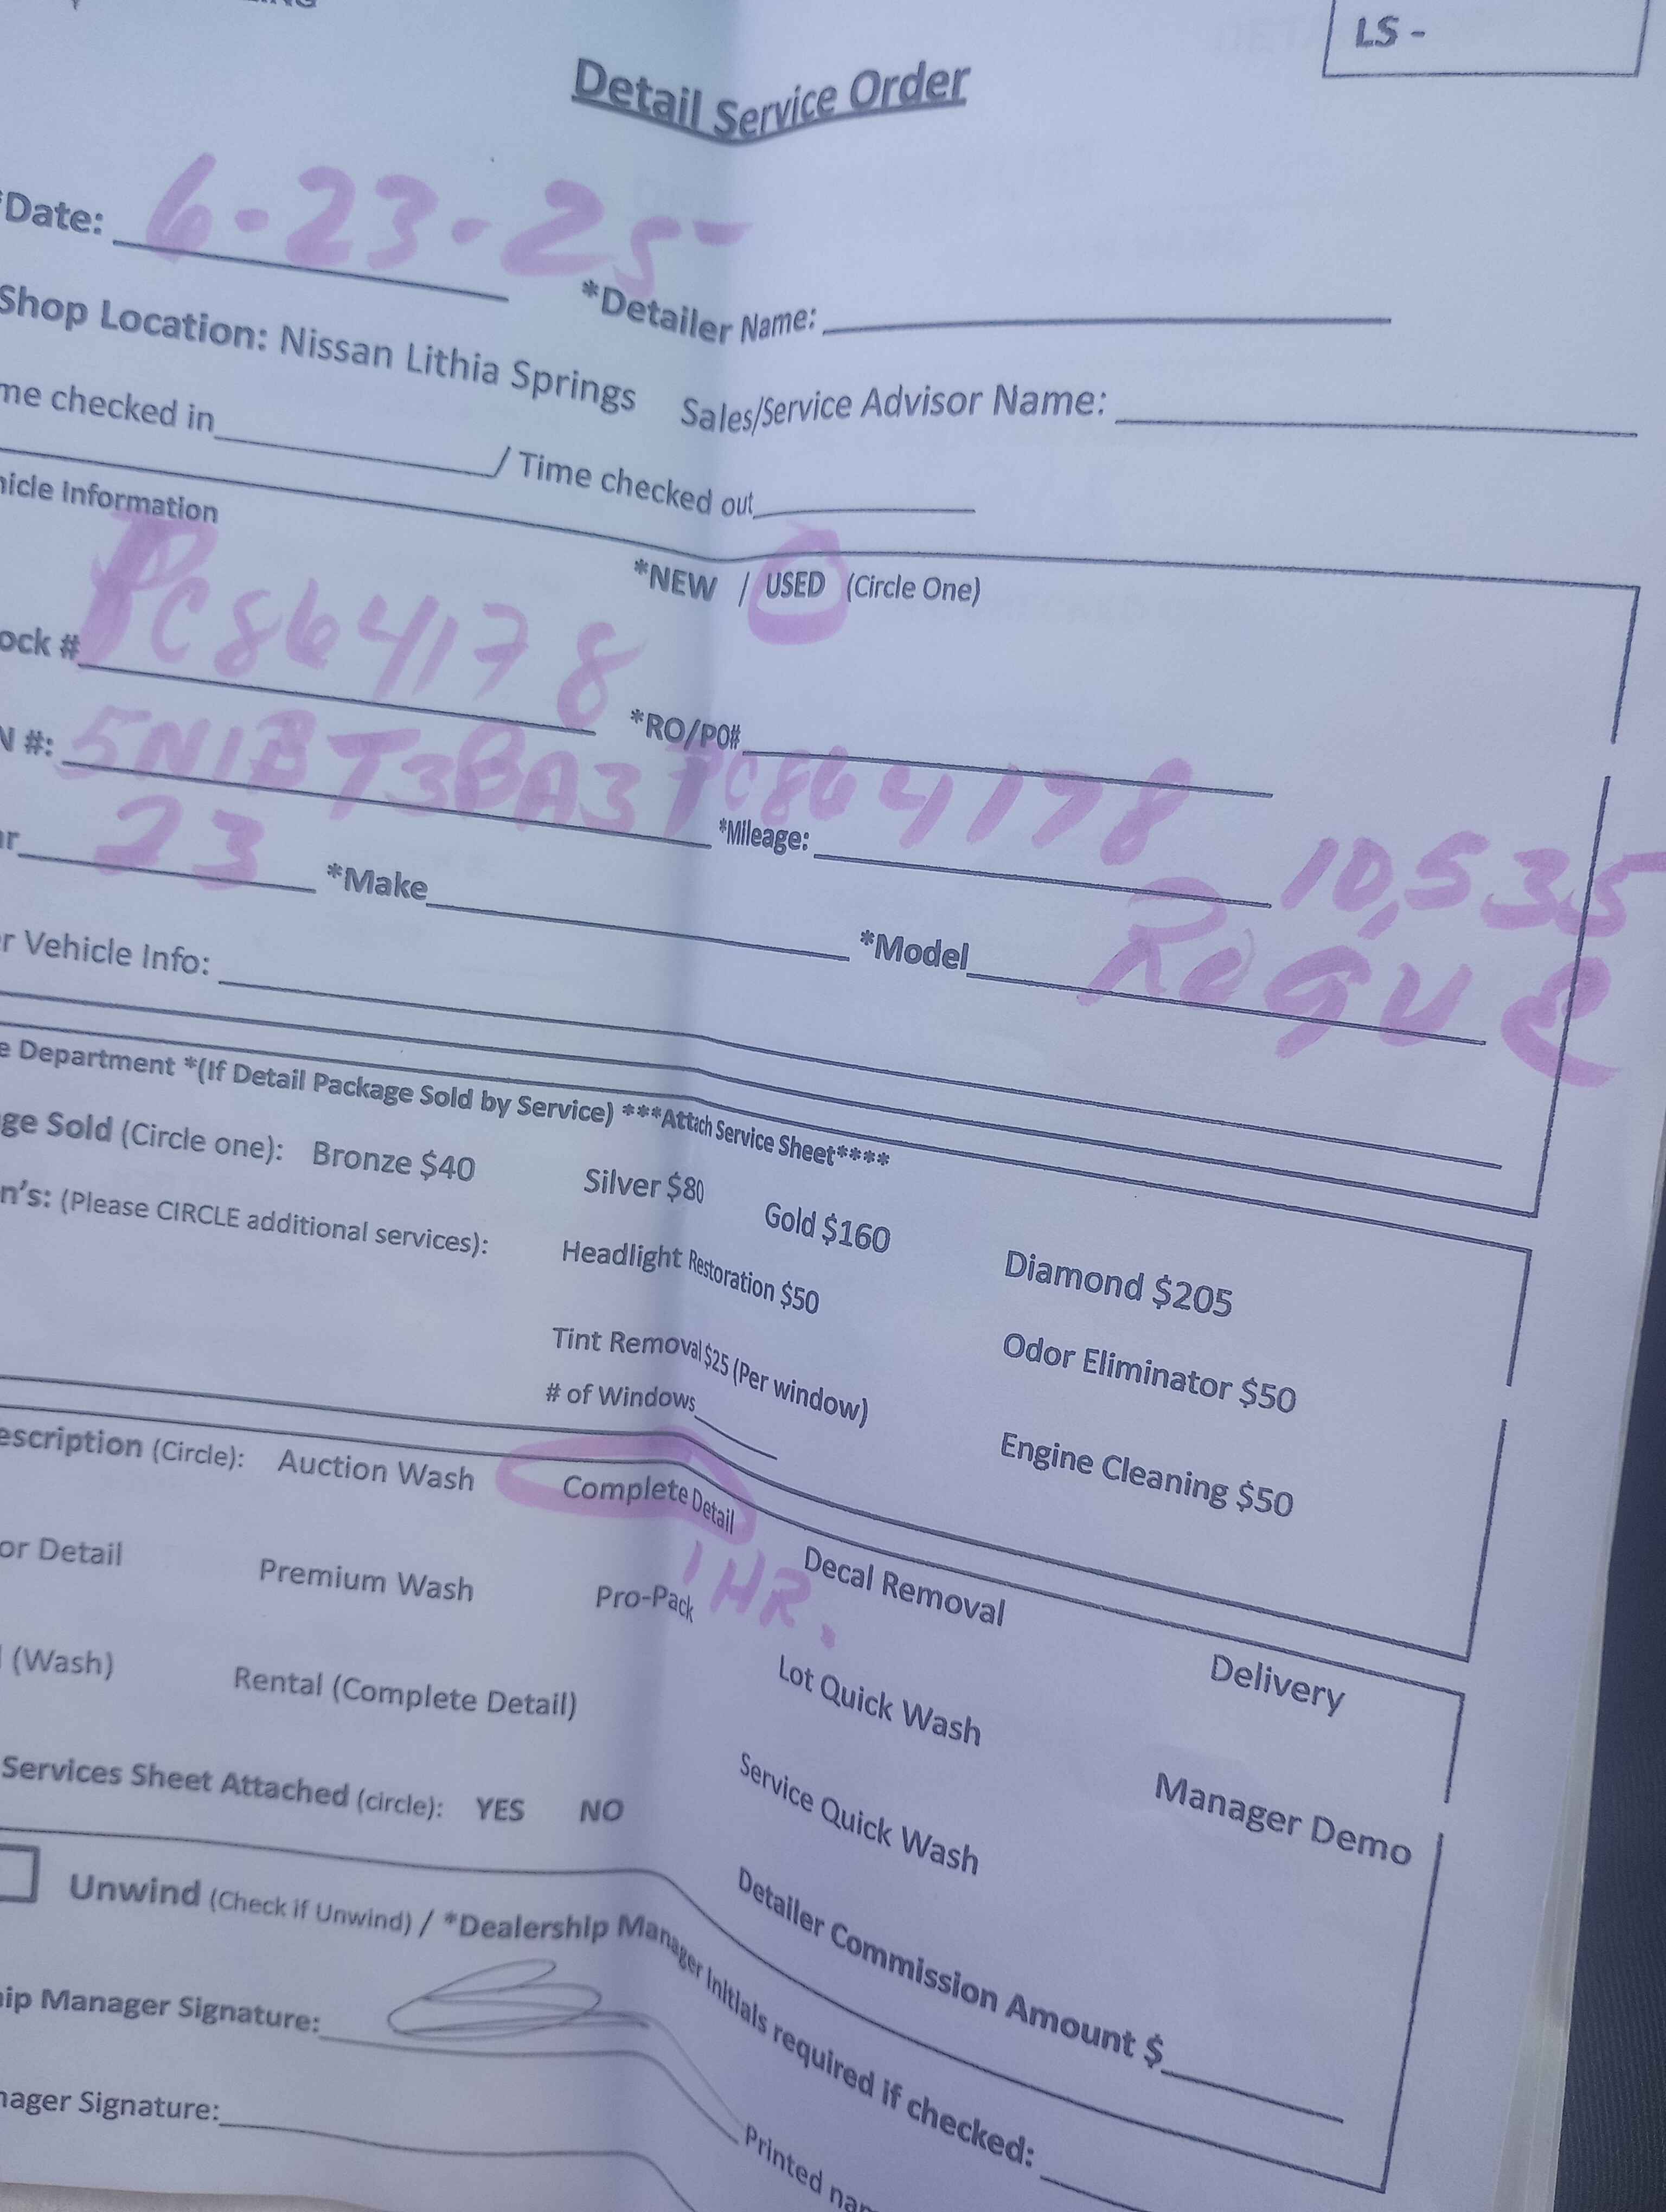 LS -
Detail Service Order
*Date: 6-23-25
*Detailer Name:
Shop Location: Nissan Lithia Springs
Sales/Service Advisor Name:
me checked in / Time checked out
hicle Information
*NEW / USED (Circle One)
ock # PC864178
*RO/PO#
N #: 5N1BT3BA3PC864178
*Mileage: 10,535
r 23 *Make
*Model ROGUE
r Vehicle Info:
e Department *(If Detail Package Sold by Service) ***Attach Service Sheet****
ge Sold (Circle one): Bronze $40 Silver $80 Gold $160 Diamond $205
n's: (Please CIRCLE additional services): Headlight Restoration $50 Odor Eliminator $50
Tint Removal $25 (Per window) Engine Cleaning $50
# of Windows
escription (Circle): Auction Wash Complete Detail Decal Removal Delivery
1 HR.
or Detail Premium Wash Pro-Pack Lot Quick Wash Manager Demo
(Wash) Rental (Complete Detail) Service Quick Wash
Services Sheet Attached (circle): YES NO Detailer Commission Amount $
Unwind (Check if Unwind) / *Dealership Manager Initials required if checked:
ip Manager Signature:
Printed nam
nager Signature: